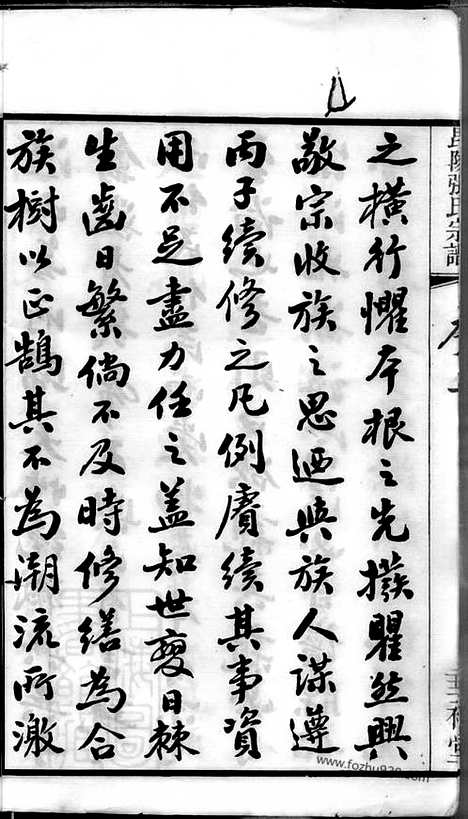 毘陵張氏宗譜
之橫行懼本根之先撥瞿然興
敬宗收族之思迺與族人謀遵
丙子續修之凡例賡續其事資
用不足盡力任之蓋知世變日棘
生齒日繁倘不及時修繕為合
族樹以正鵠其不為潮流所激
www.fozhu920.com